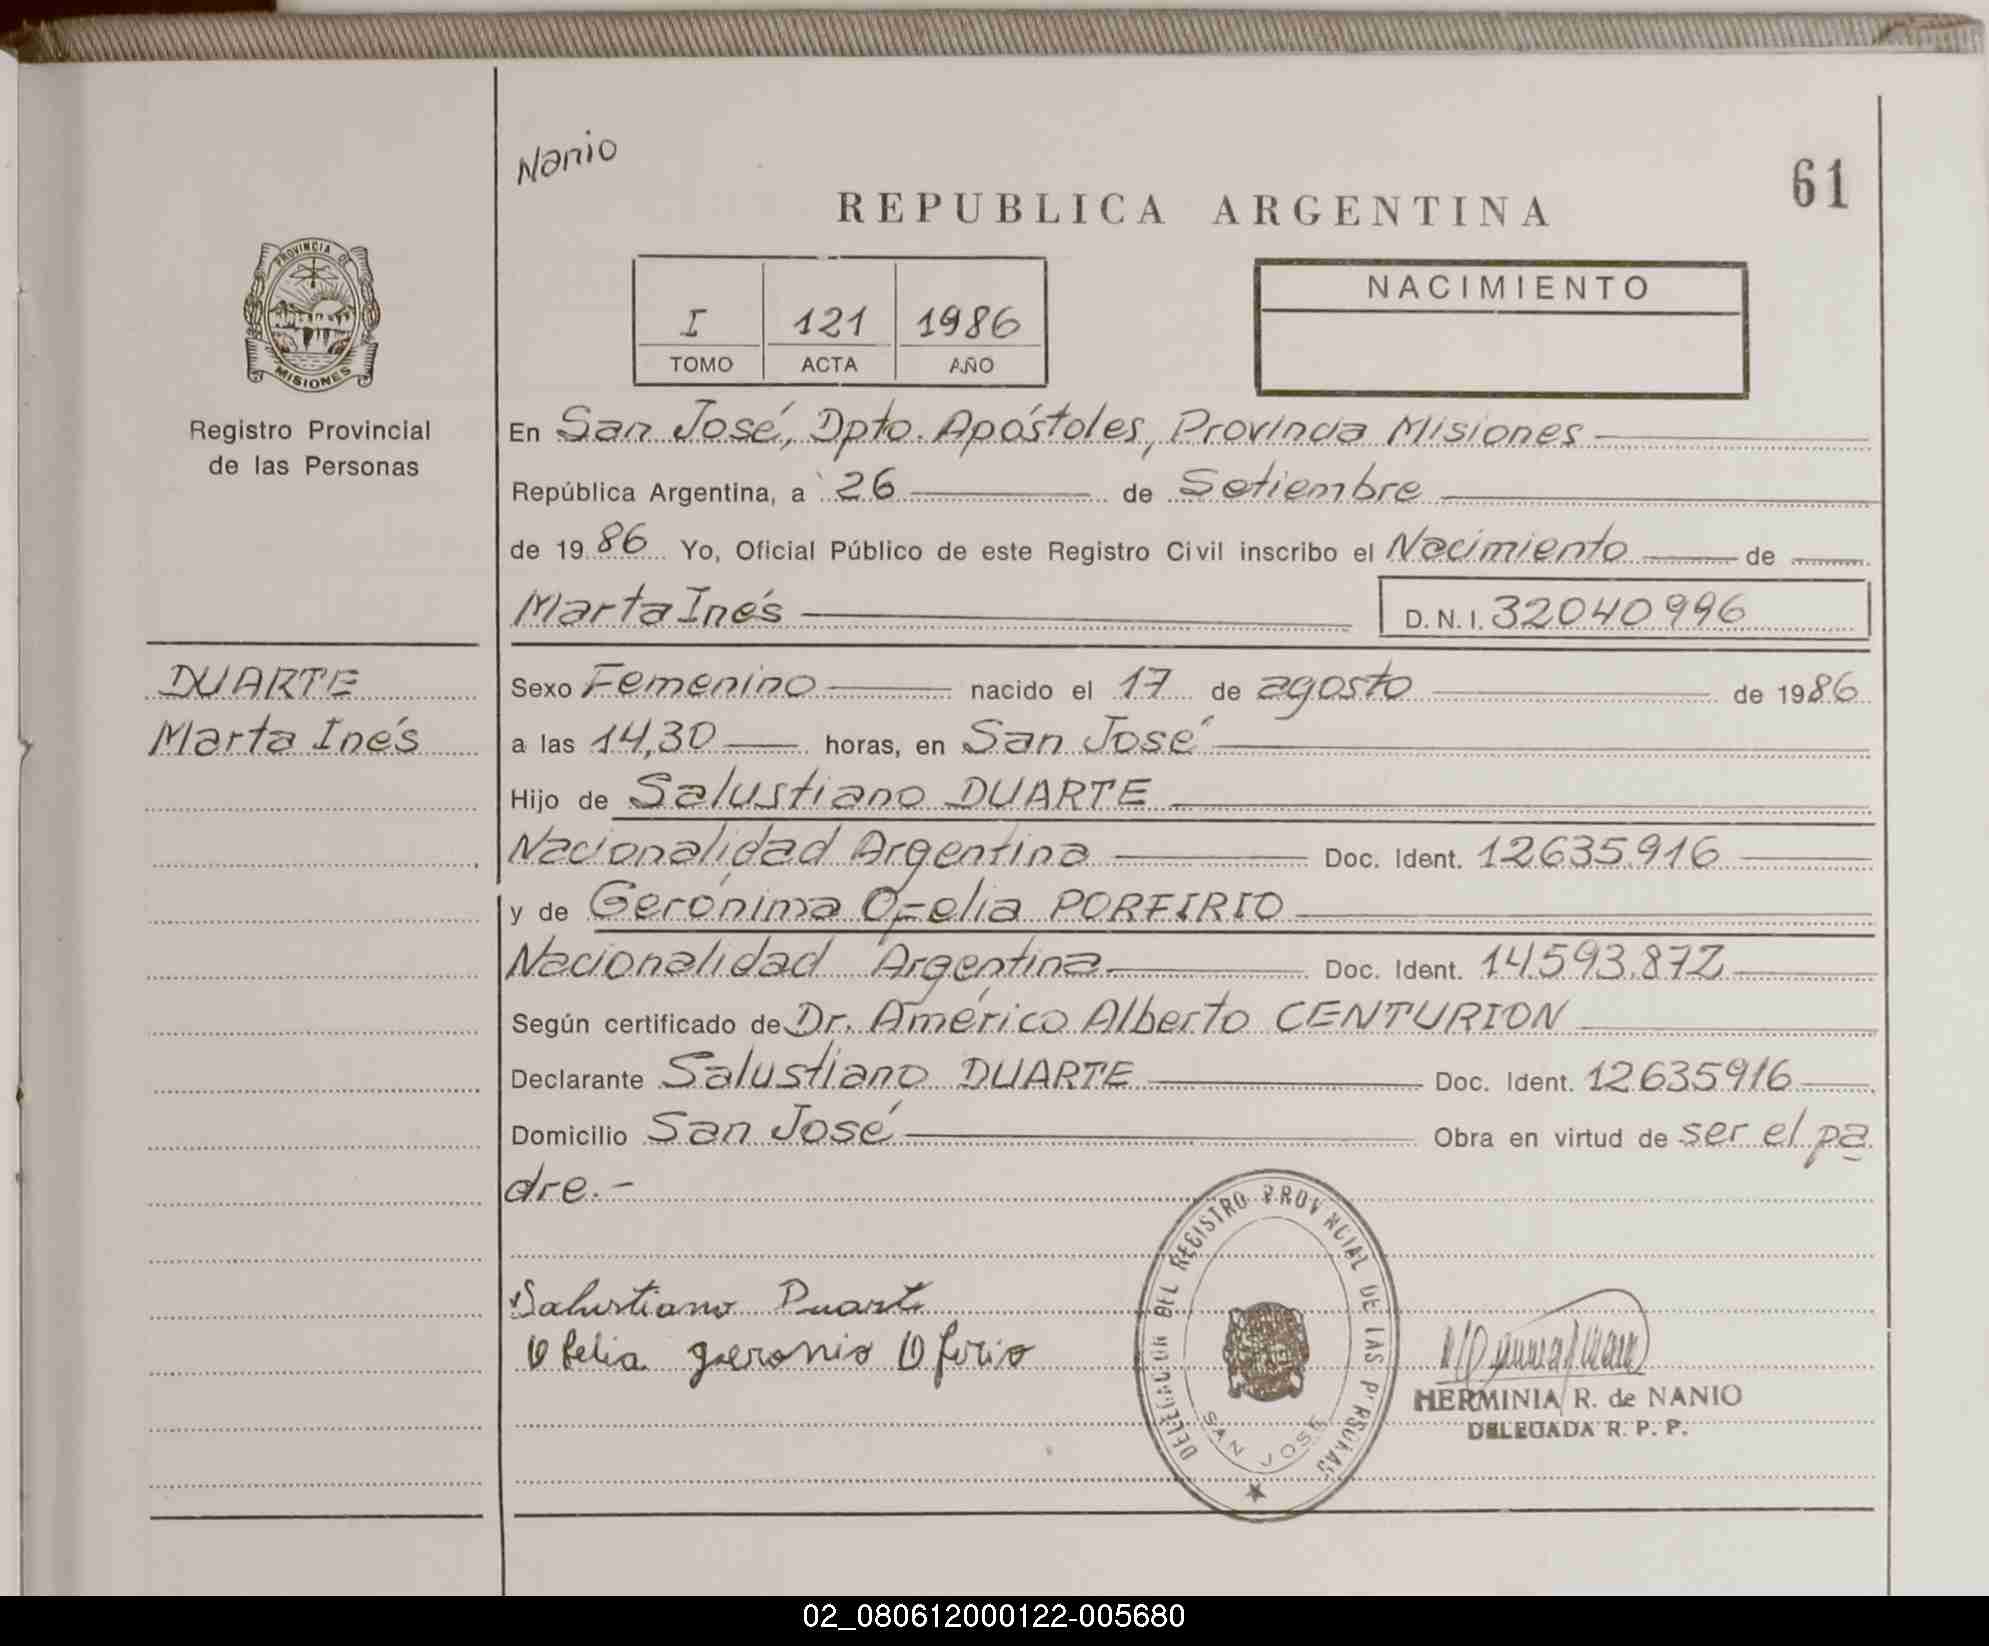 Nanio
61
REPUBLICA ARGENTINA
PROVINCIA DE
MISIONES
Registro Provincial
de las Personas
I 121 1986
TOMO ACTA AÑO
NACIMIENTO
En San José, Dpto. Apóstoles, Provincia Misiones
República Argentina, a 26 de Setiembre
de 1986 Yo, Oficial Público de este Registro Civil inscribo el Nacimiento de
Marta Inés D. N. I. 32040996
DUARTE
Marta Inés
Sexo Femenino nacido el 17 de agosto de 1986
a las 14,30 horas, en San José
Hijo de Salustiano DUARTE
Nacionalidad Argentina Doc. Ident. 12635916
y de Gerónima Ofelia PORFIRIO
Nacionalidad Argentina Doc. Ident. 14.593.872
Según certificado de Dr. Américo Alberto CENTURION
Declarante Salustiano DUARTE Doc. Ident. 12635916
Domicilio San José Obra en virtud de ser el pa
dre.-
Salustiano Duarte
Ofelia geronio Oforio
DELEGACION DEL REGISTRO PROVINCIAL DE LAS PERSONAS
SAN JOSE
HERMINIA R. de NANIO
DELEGADA R. P. P.
02_080612000122-005680